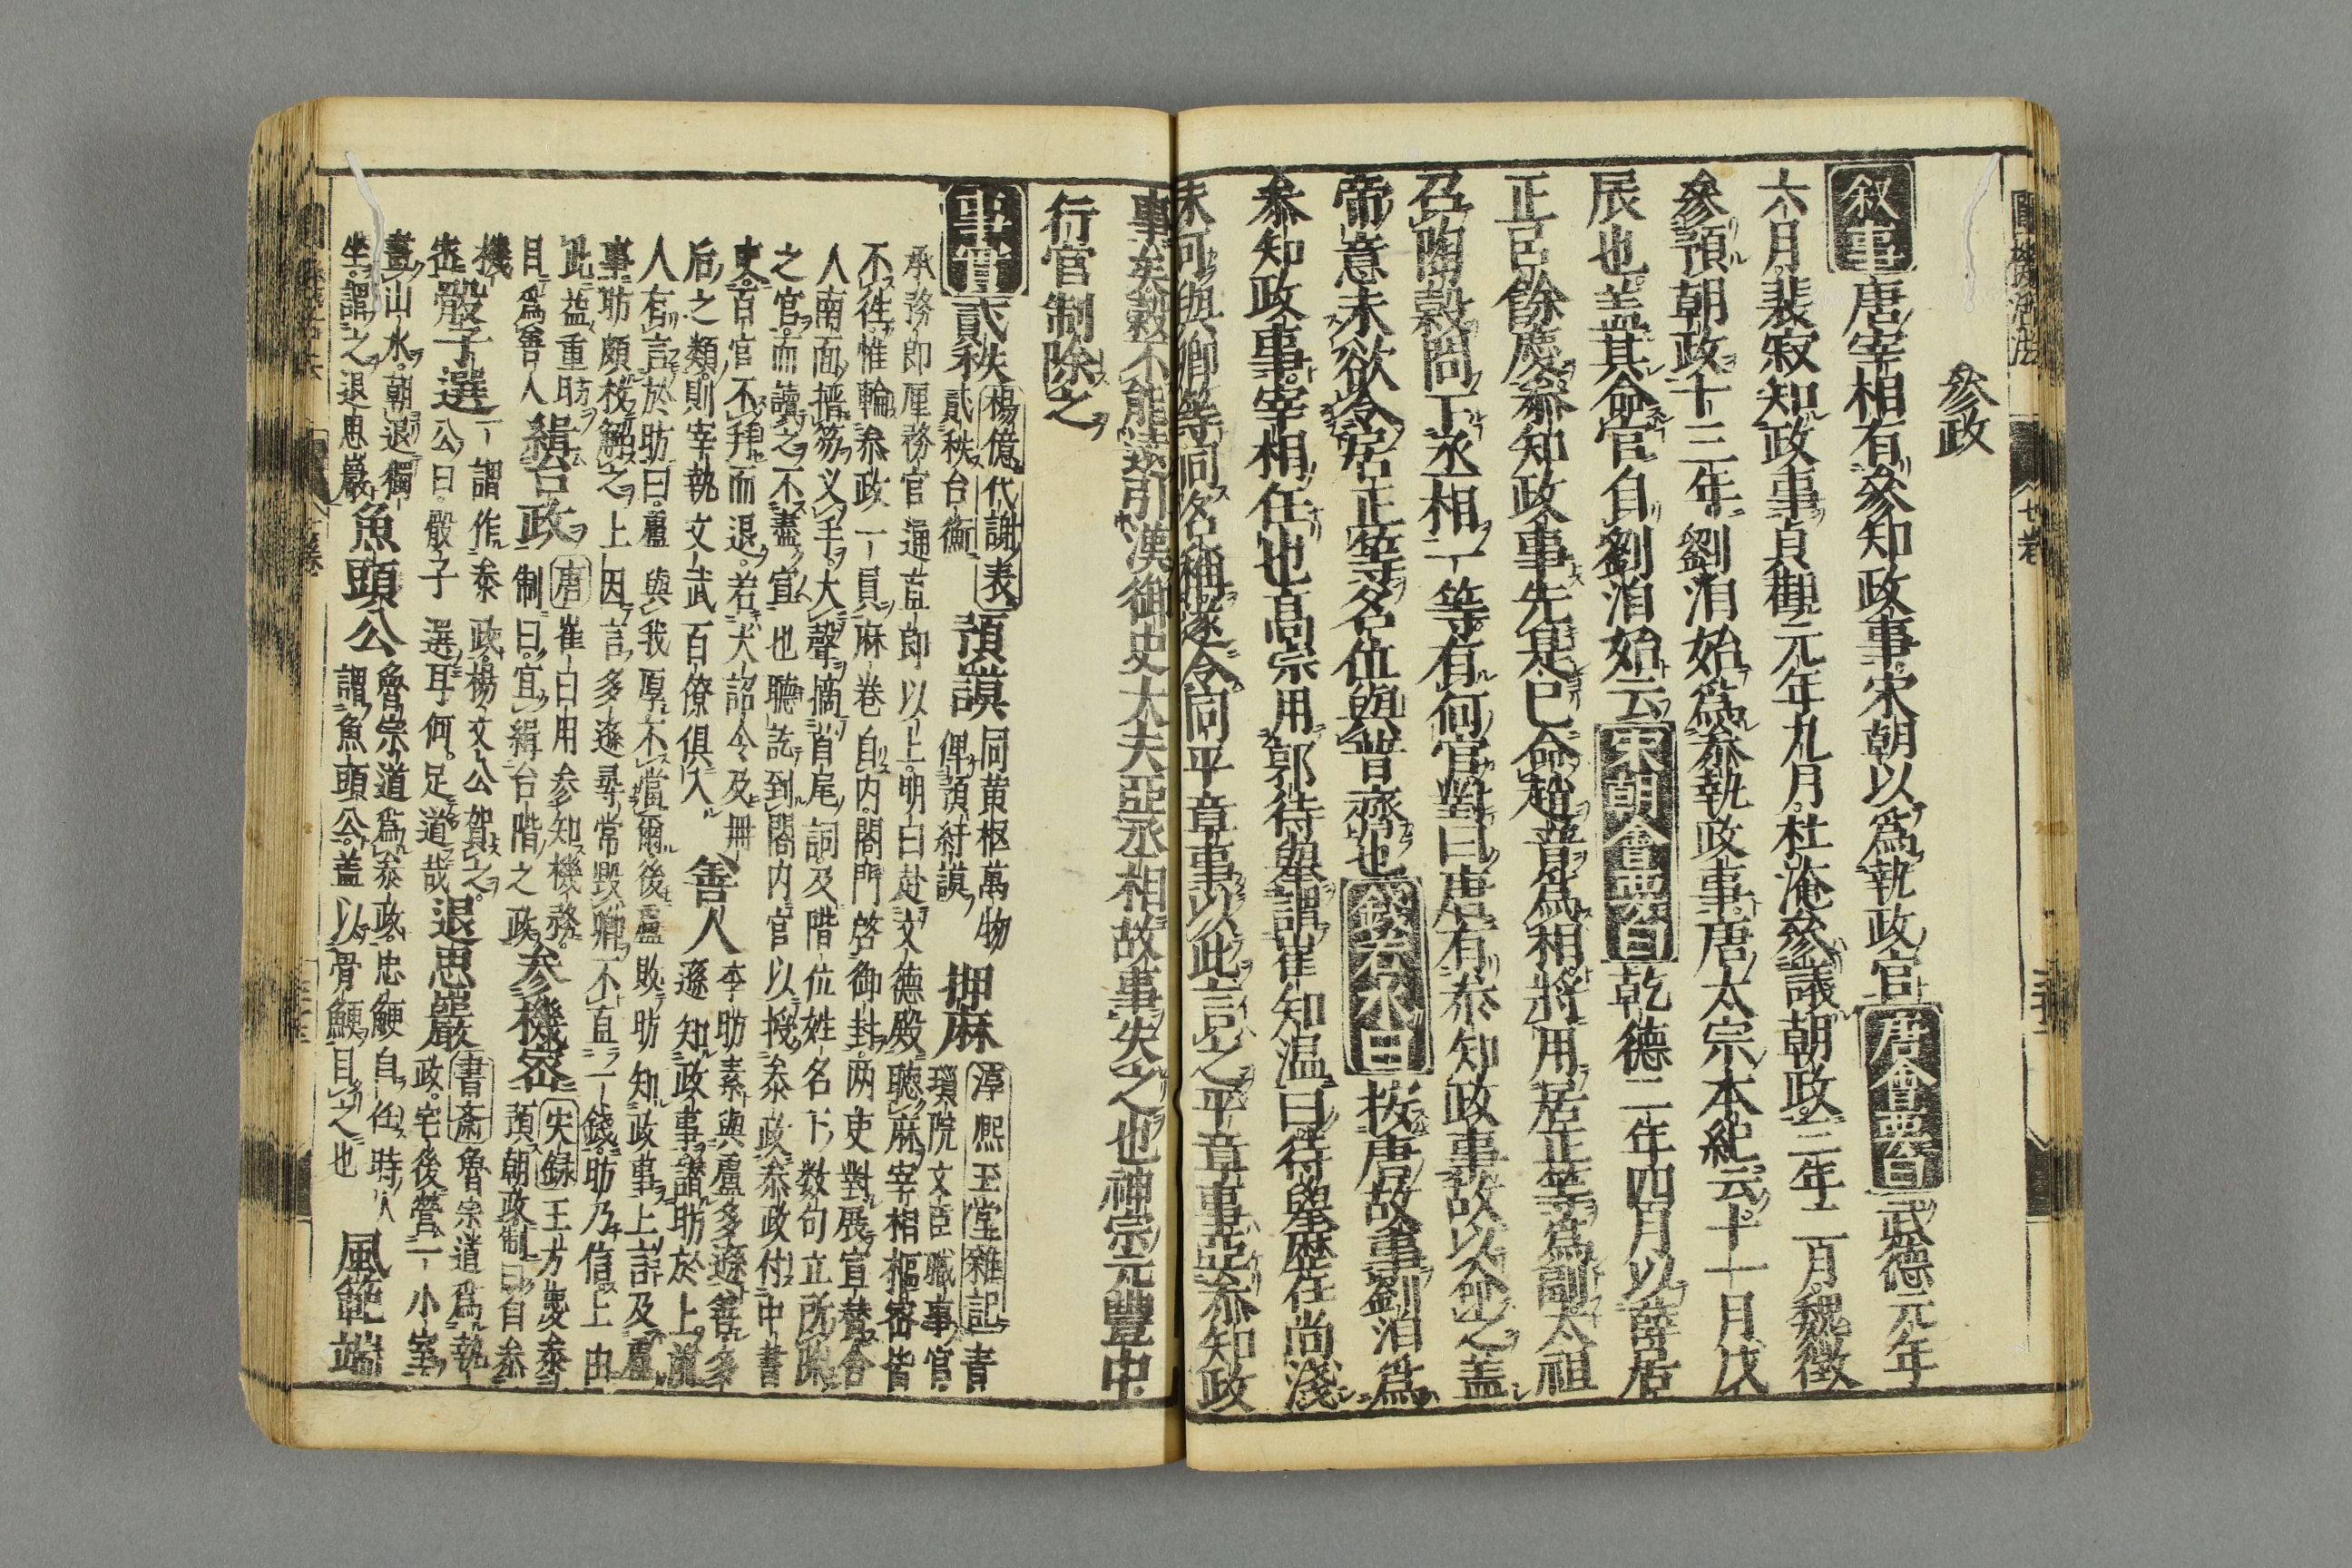 參政
叙事唐宰相有參知政事宋朝以爲執政官唐會要曰武德元年
六月裴寂知政事貞觀元年九月杜淹參議朝政三年二月魏徵
參預朝政十三年劉洎始爲叅執政事唐太宗本紀云十一月戊
辰也盖其命官自劉洎始云宋朝會要曰乾德二年四月以薛居
正呂餘慶叅知政事先是已命趙普爲相將用居正等爲副太祖
召陶穀問下丞相一等有何官對曰唐有叅知政事故以命之盖
帝意未欲令居正等名位與普齊也錢希白曰按唐故事劉洎爲
叅知政事宰相任也高宗用郭待舉謂崔知温曰待舉歴任尚淺
未可與卿等同名稱遂令同平章事以此言之平章事亞叅知政
事矣穀不能遠引漢御史大夫亞丞相故事失之也神宗元豐中
行官制除之
事實貳秩楊億代謝表貳秩台衡預謨同黄枢萬物俾預紆謨押麻淳熙玉堂雜記青
瑣院文臣職事官
承務即厘務官通直郎以上明白赴文德殿聴麻宰相樞密皆
不往惟輪叅政一員麻卷自内閤門啓御封两吏對展宣賛舎
人南面搢笏义手大聲摘首尾詞及階位姓名下数句立所
之官而讀之不盡宣也聽訖到閤内官以授叅政叅政付中書
吏百官不拜而退若大詔令及冊
后之類則宰執文武百僚俱入善人李昉素與盧多遜善多
遜知政事譖昉於上
人有言於昉曰盧與我厚不當爾後盧敗昉知政事上言及盧
事昉頗校解之上因言多遜尋常毀卿不直一錢昉乃信上由
此益重昉
目爲善人緝台政唐崔白用参知機務制曰宜緝台階之政参機密实録王方慶叅預朝政制曰自叅
機
密骰子選一謂作叅政楊文公賀之公曰骰子選耳何足道哉退思巖書斎魯宗道爲執政宅後營一小室
畫山水朝退獨
坐謂之退思巖魚頭公魯宗道爲叅政忠鯁自任時人謂魚頭公盖以骨鯁目之也風範端
七巻